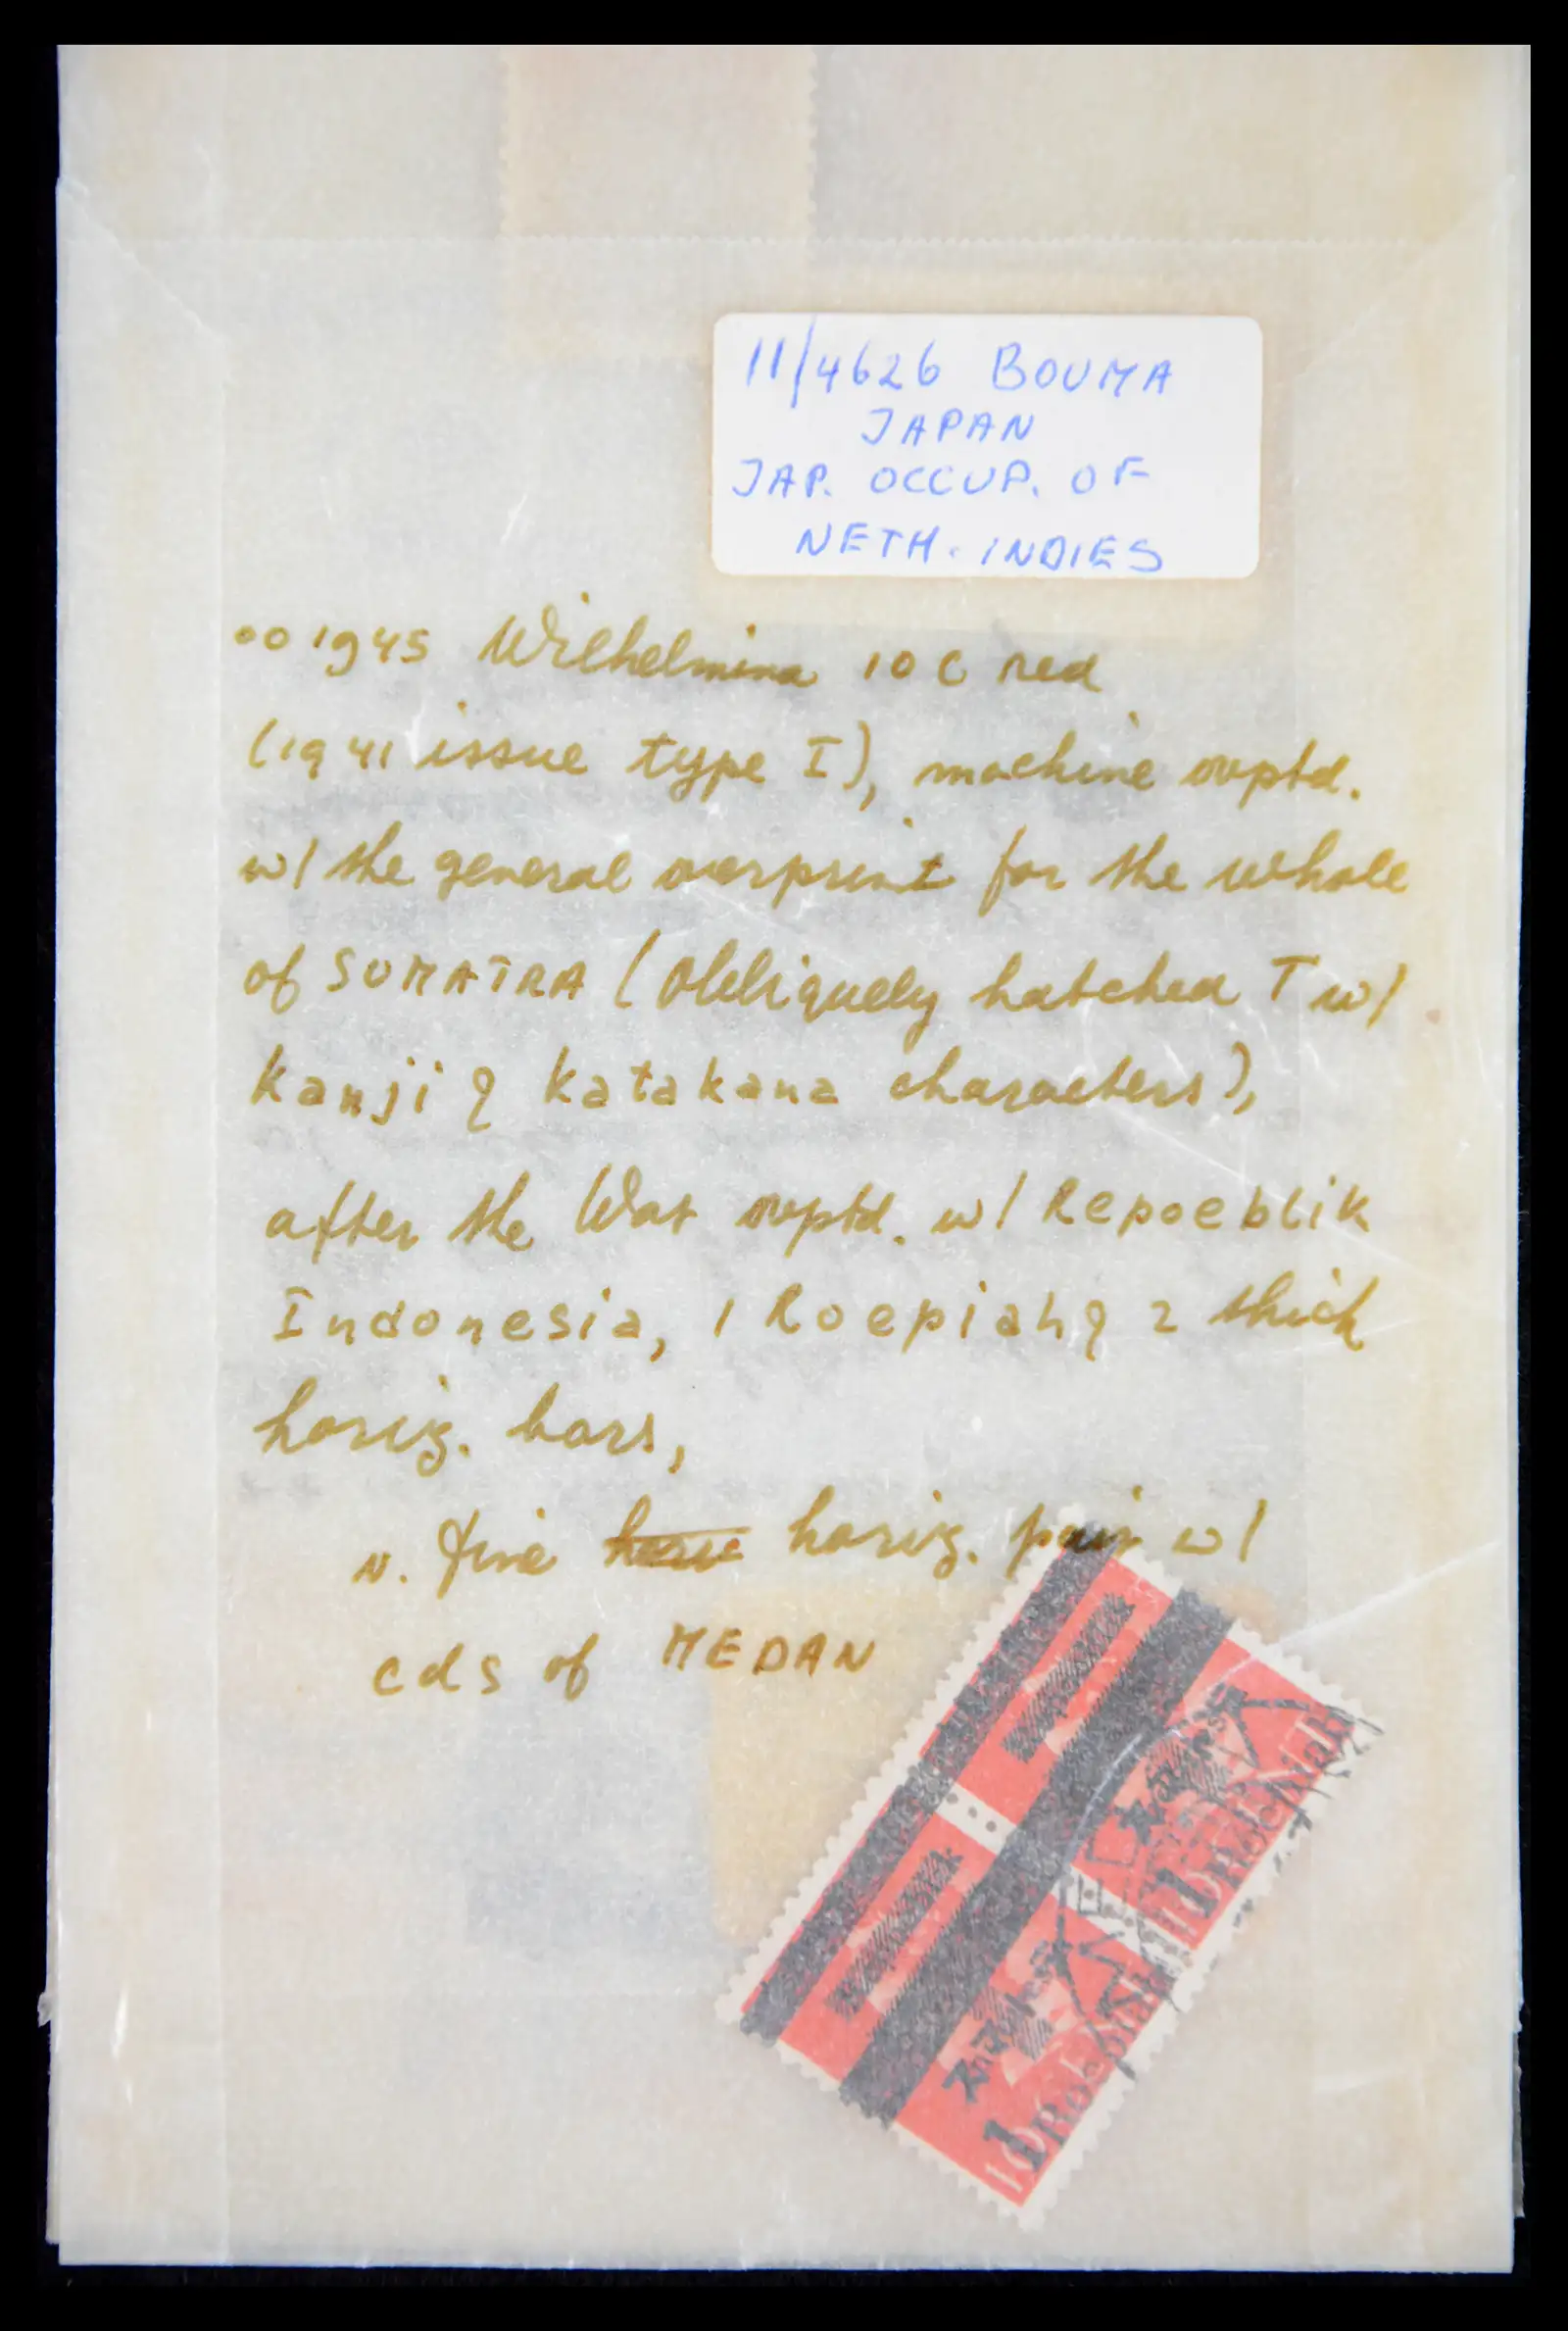 11/4626 BOUMA
JAPAN
JAP. OCCUP. OF
NETH. INDIES
oo 1945 Wilhelmina 10 C red
(1941 issue type I), machine ovptd.
w/ the general overprint for the whole
of SUMATRA (obliquely hatched T w/
Kanji & Katakana characters),
after the War ovptd. w/ Repoeblik
Indonesia, 1 Roepiah & 2 thick
horiz. bars,
v. fine horiz. pair w/
cds of MEDAN
1 Roepiah
1 Roepiah